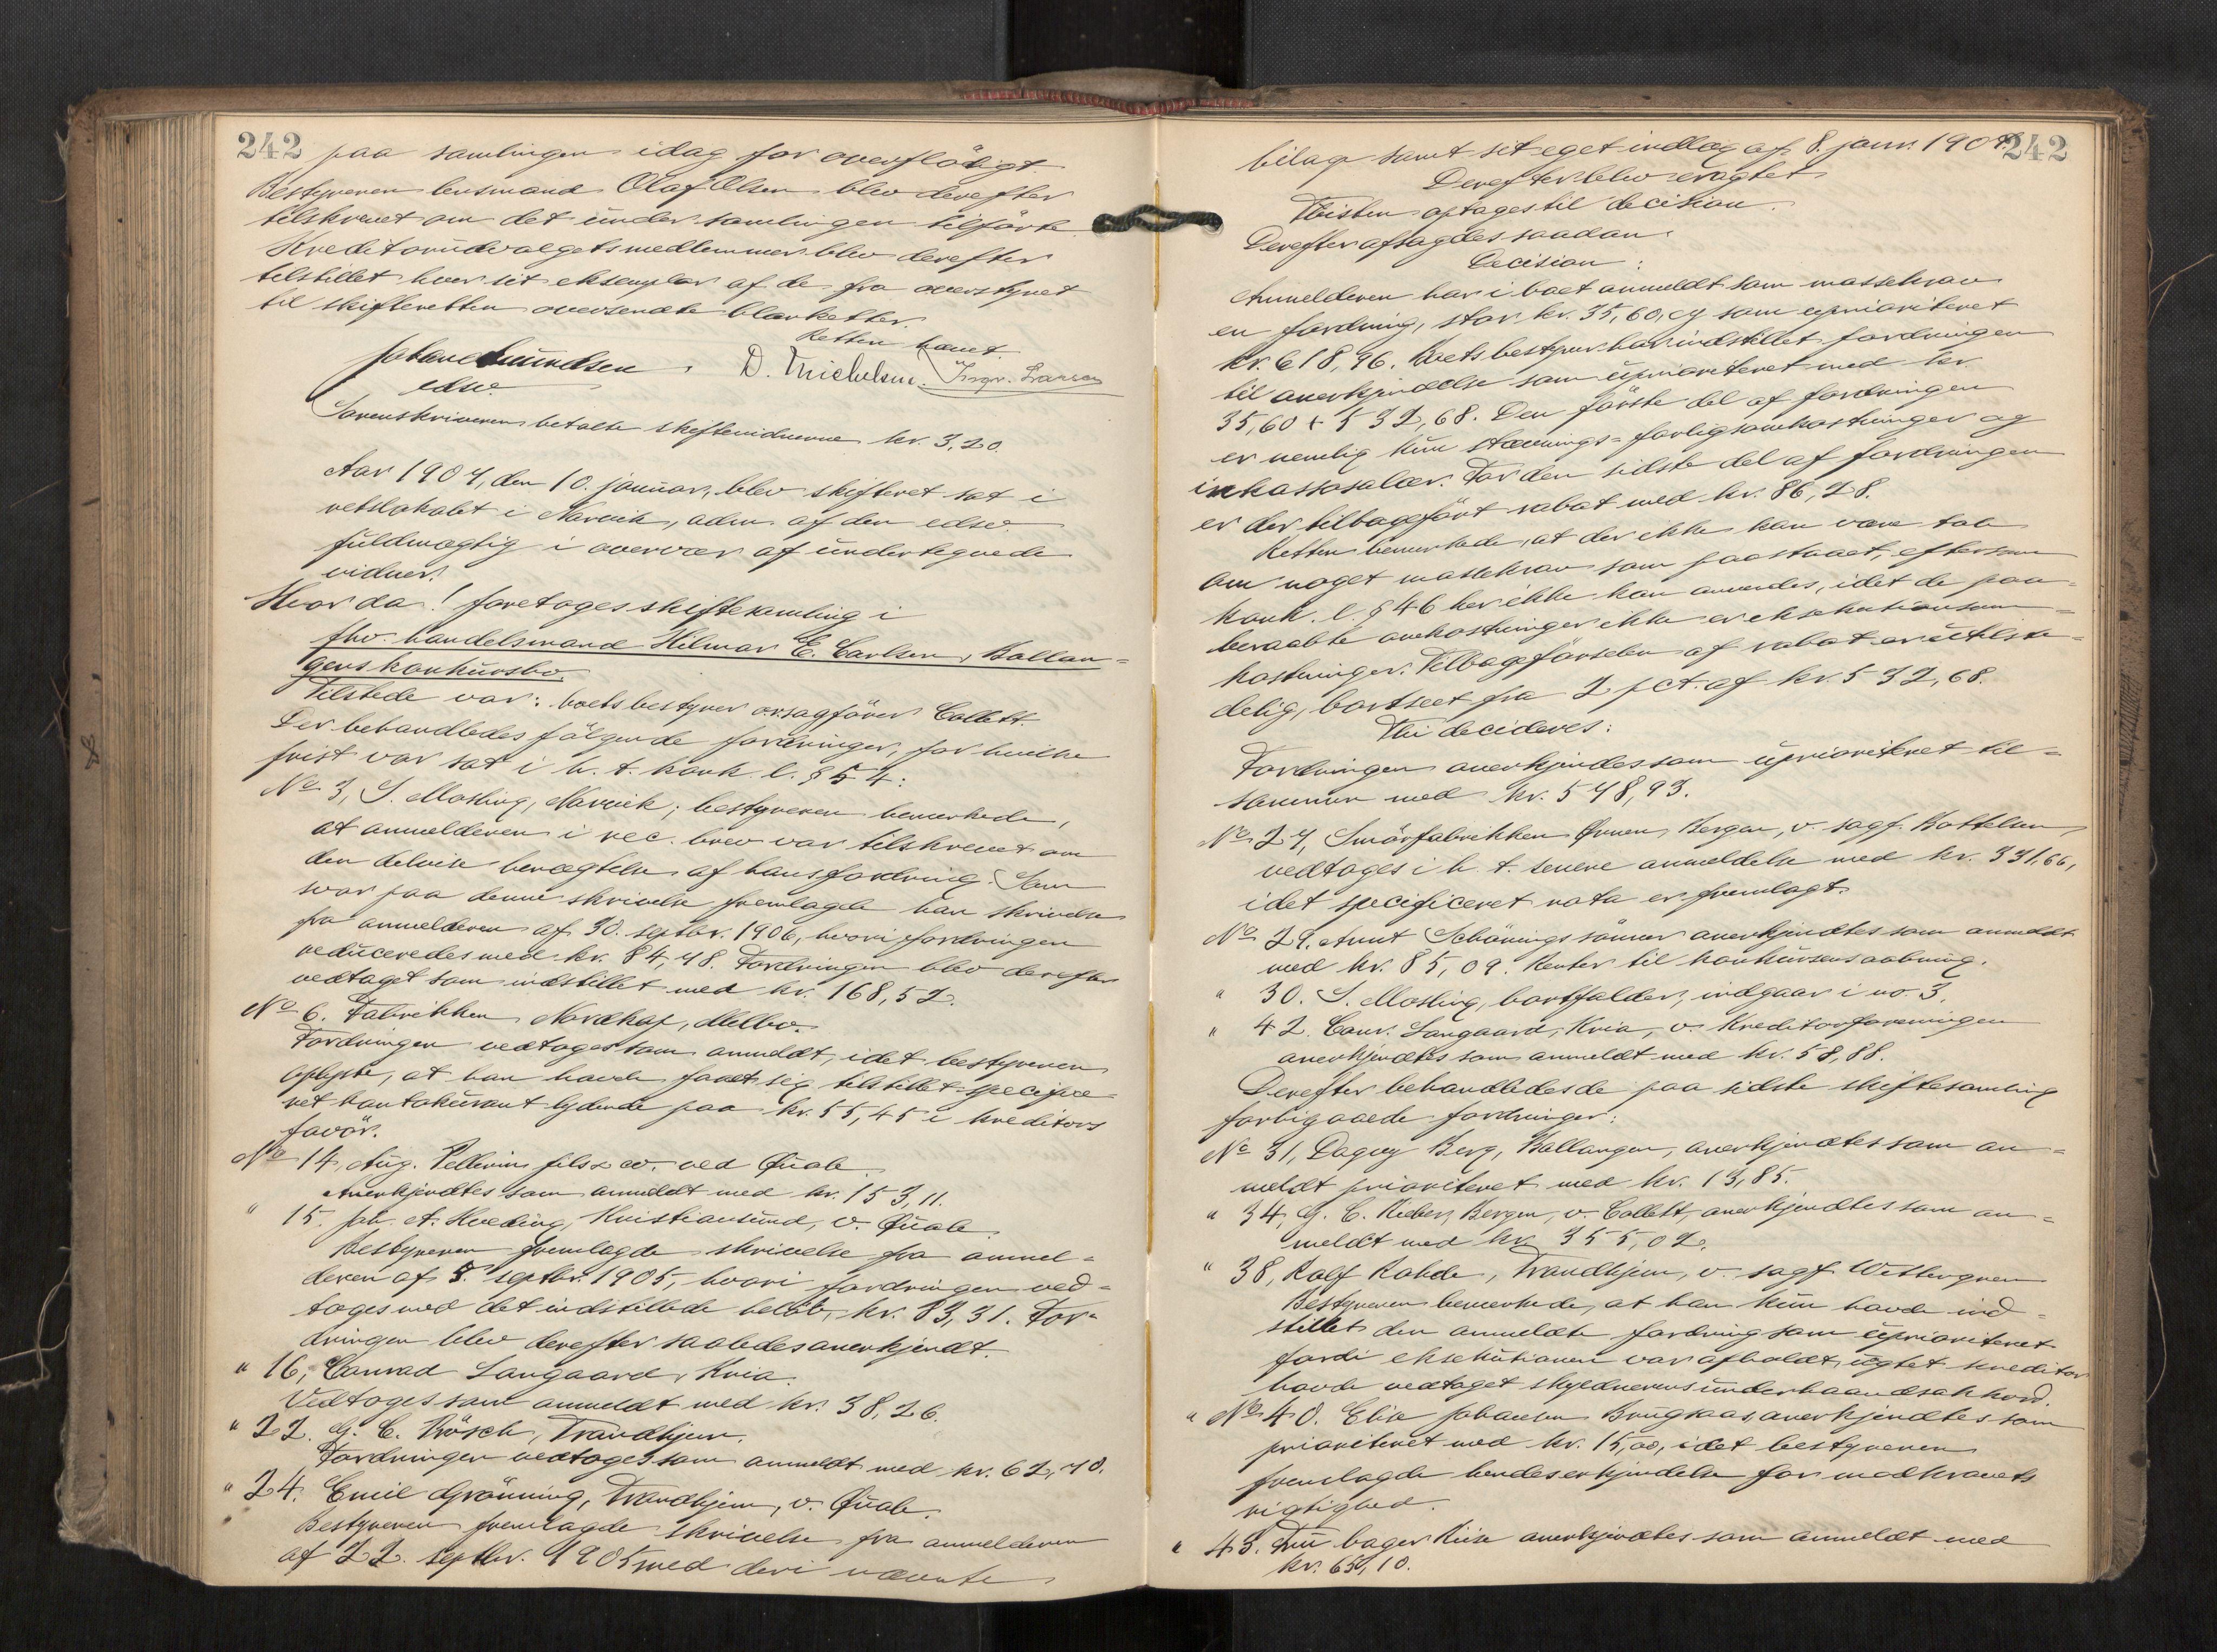 242
paa samlingen idag for overflödigt.
Bestyreren lensmand Olaf Olsen blev derefter
tilskrevet om det under samlingen tilförte.
Kreditorudvalgets medlemmer blev derefter
tilstillet hver sit eksemplar af de fra overstyret
til skifteretten oversendte blanketter.
Retten hævet.
D. Michelsen.
edsv.
Sorenskriveren betalte skiftevidnerne kr. 3,20.
Aar 1907, den 10. januar, blev skifteret sat i
retslokalet i Narvik, adm. af den edsv.
fuldmægtig i overvær af undertegnede
vidner.
Hvorda! foretoges skiftesamling i
fhv. handelsmand Hilmar E. Carlsen, Ballan-
gens konkursbo.
Tilstede var: boets bestyrer o.r.sagförer Collett.
Der behandledes fölgende fordringer, for hvilke
frist var sat i h. t. konk. l. § 54:
No 3, S. Mosling, Narvik; bestyreren bemerkede,
at anmelderen i rec. brev var tilskrevet om
den delvise benægtelse af hans fordring. Som
svar paa denne skrivelse fremlagde han skrivelse
fra anmelderen af 30. septbr. 1906, hvori fordringen
reduceredes med kr. 84,48. Fordringen blev derefter
vedtaget som indstillet med kr. 168,52.
No 6. Fabrikken Nordkap, Melbo.
Fordringen vedtoges som anmeldt, idet bestyreren
oplyste, at han havde faaet sig tilstillet specifice-
ret kontokurant lydende paa kr. 55,45 i kreditors
favör.
No 14, Aug. Pellerin fils & co. ved Quale.
Anerkjendtes som anmeldt med kr. 153,11.
" 15. Joh. A. Hveding, Kristiansund, v. Quale.
Bestyreren fremlagde skrivelse fra anmel-
deren af 5. septbr. 1905, hvori fordringen ved-
toges med det indstillede belöb, kr. 83,31. For-
dringen blev derefter saaledes anerkjendt.
" 16, Conrad Langaard, Kria.
Vedtoges som anmeldt med kr. 38,26.
" 22. G. C. Rösch, Trondhjem.
Fordringen vedtoges som anmeldt med kr. 62,40.
" 24. Emil Grönning, Trondhjem, v. Quale.
Bestyreren fremlagde skrivelse fra anmelderen
af 22. septbr. 1905 med deri nævnte
242
bilag samt sit eget indlæg af 8. janr. 1907.
Derefter blev eragtet
Tvisten optages til decision.
Derefter afsagdes saadan
Decision:
Anmelderen har i boet anmeldt som massekrav
en fordring, stor kr. 35,60, og som uprioriteret
kr. 618,96. Boets bestyrer har indstillet fordringen
til anerkjendelse som uprioriteret med kr.
35,60 + 532,68. Den förste del af fordringen
er nemlig kun stævnings- forligsomkostninger og
inkassosalær. For den sidste del af fordringen
er der tilbagefört rabat med kr. 86,28.
Retten bemerkede, at der ikke kan være tale
om noget massekrav som paastaaet, eftersom
konk. l. § 46 her ikke kan anvendes, idet de paa-
beraabte omkostninger ikke er eksekutionsom-
kostninger. Tilbageförselen af rabat er utilste-
delig, bortseet fra 2 pct. af kr. 532,68.
Thi decideres:
Fordringen anerkjendes som uprioriteret til-
sammen med kr. 548,93.
No 27, Smörfabrikken Örnen, Bergen, v. sagf. Bottelsen,
vedtoges i h. t. senere anmeldelse med kr. 331,66,
idet specificeret nota er fremlagt.
No 29. Arnt Schönings sönner anerkjendtes som anmeldt
med kr. 85,09. Renter til konkursens aabning.
" 30. S. Mosling, bortfalder, indgaar i no. 3.
" 42. Conr. Langaard, Kria, v. Kreditorforeningen
anerkjendtes som anmeldt med kr. 58,88.
Derefter behandledes de paa sidste skiftesamling
forbigaaede fordringer:
No 31, Dagny Berg, Ballangen, anerkjendtes som an-
meldt prioriteret med kr. 13,85.
" 34, G. C. Rieber, Bergen, v. Collett, anerkjendtes som an-
meldt med kr. 355,02.
" 38, Rolf Rohde, Trondhjem, v. sagf. Westergren
Bestyreren bemerkede, at han kun havde ind-
stillet den anmeldte fordring som uprioriteret
fordi eksekutionen var afholdt, uagtet kreditor
havde vedtaget skyldnerens underhaandsakkord.
" No 40. Elise Johansen Brugsaas, anerkjendtes som
prioriteret med kr. 15,00, idet bestyreren
fremlagde hendes erkjendelse for modkravets
rigtighed.
" 43. Fru bager Riise anerkjendtes som anmeldt med
kr. 650,10.